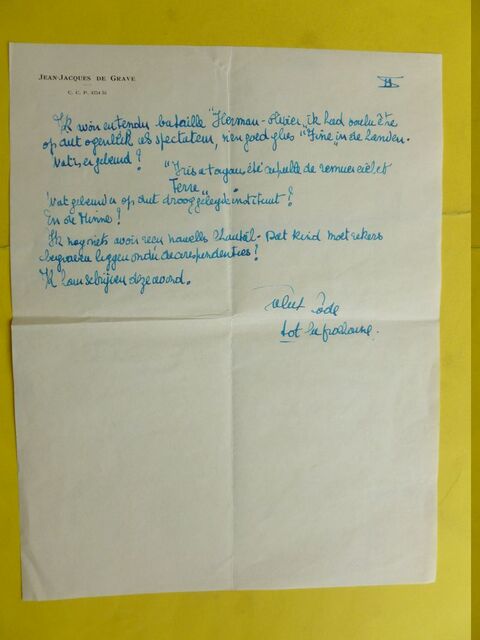 JEAN-JACQUES DE GRAVE
C. C. P.
II
Ik von entendu bataille "Herman-Olivier", ik had voulu être
op dat ogenblik als spectateur, rien goed glas "Fine" in de handen.
Wat is er gebeurd?
"Iris a toujours été capable de remuer ciel et
Terre"
Wat gebeurd er op dat drooggelegde instituut?
En de Minne?
Ik nog niets avoir reçu nouvelles Chantal. Dat kind moet zekers
begraven liggen onder de correspondenties!
Ik haar schrijven deze avond.
Salut
tot la prochaine.